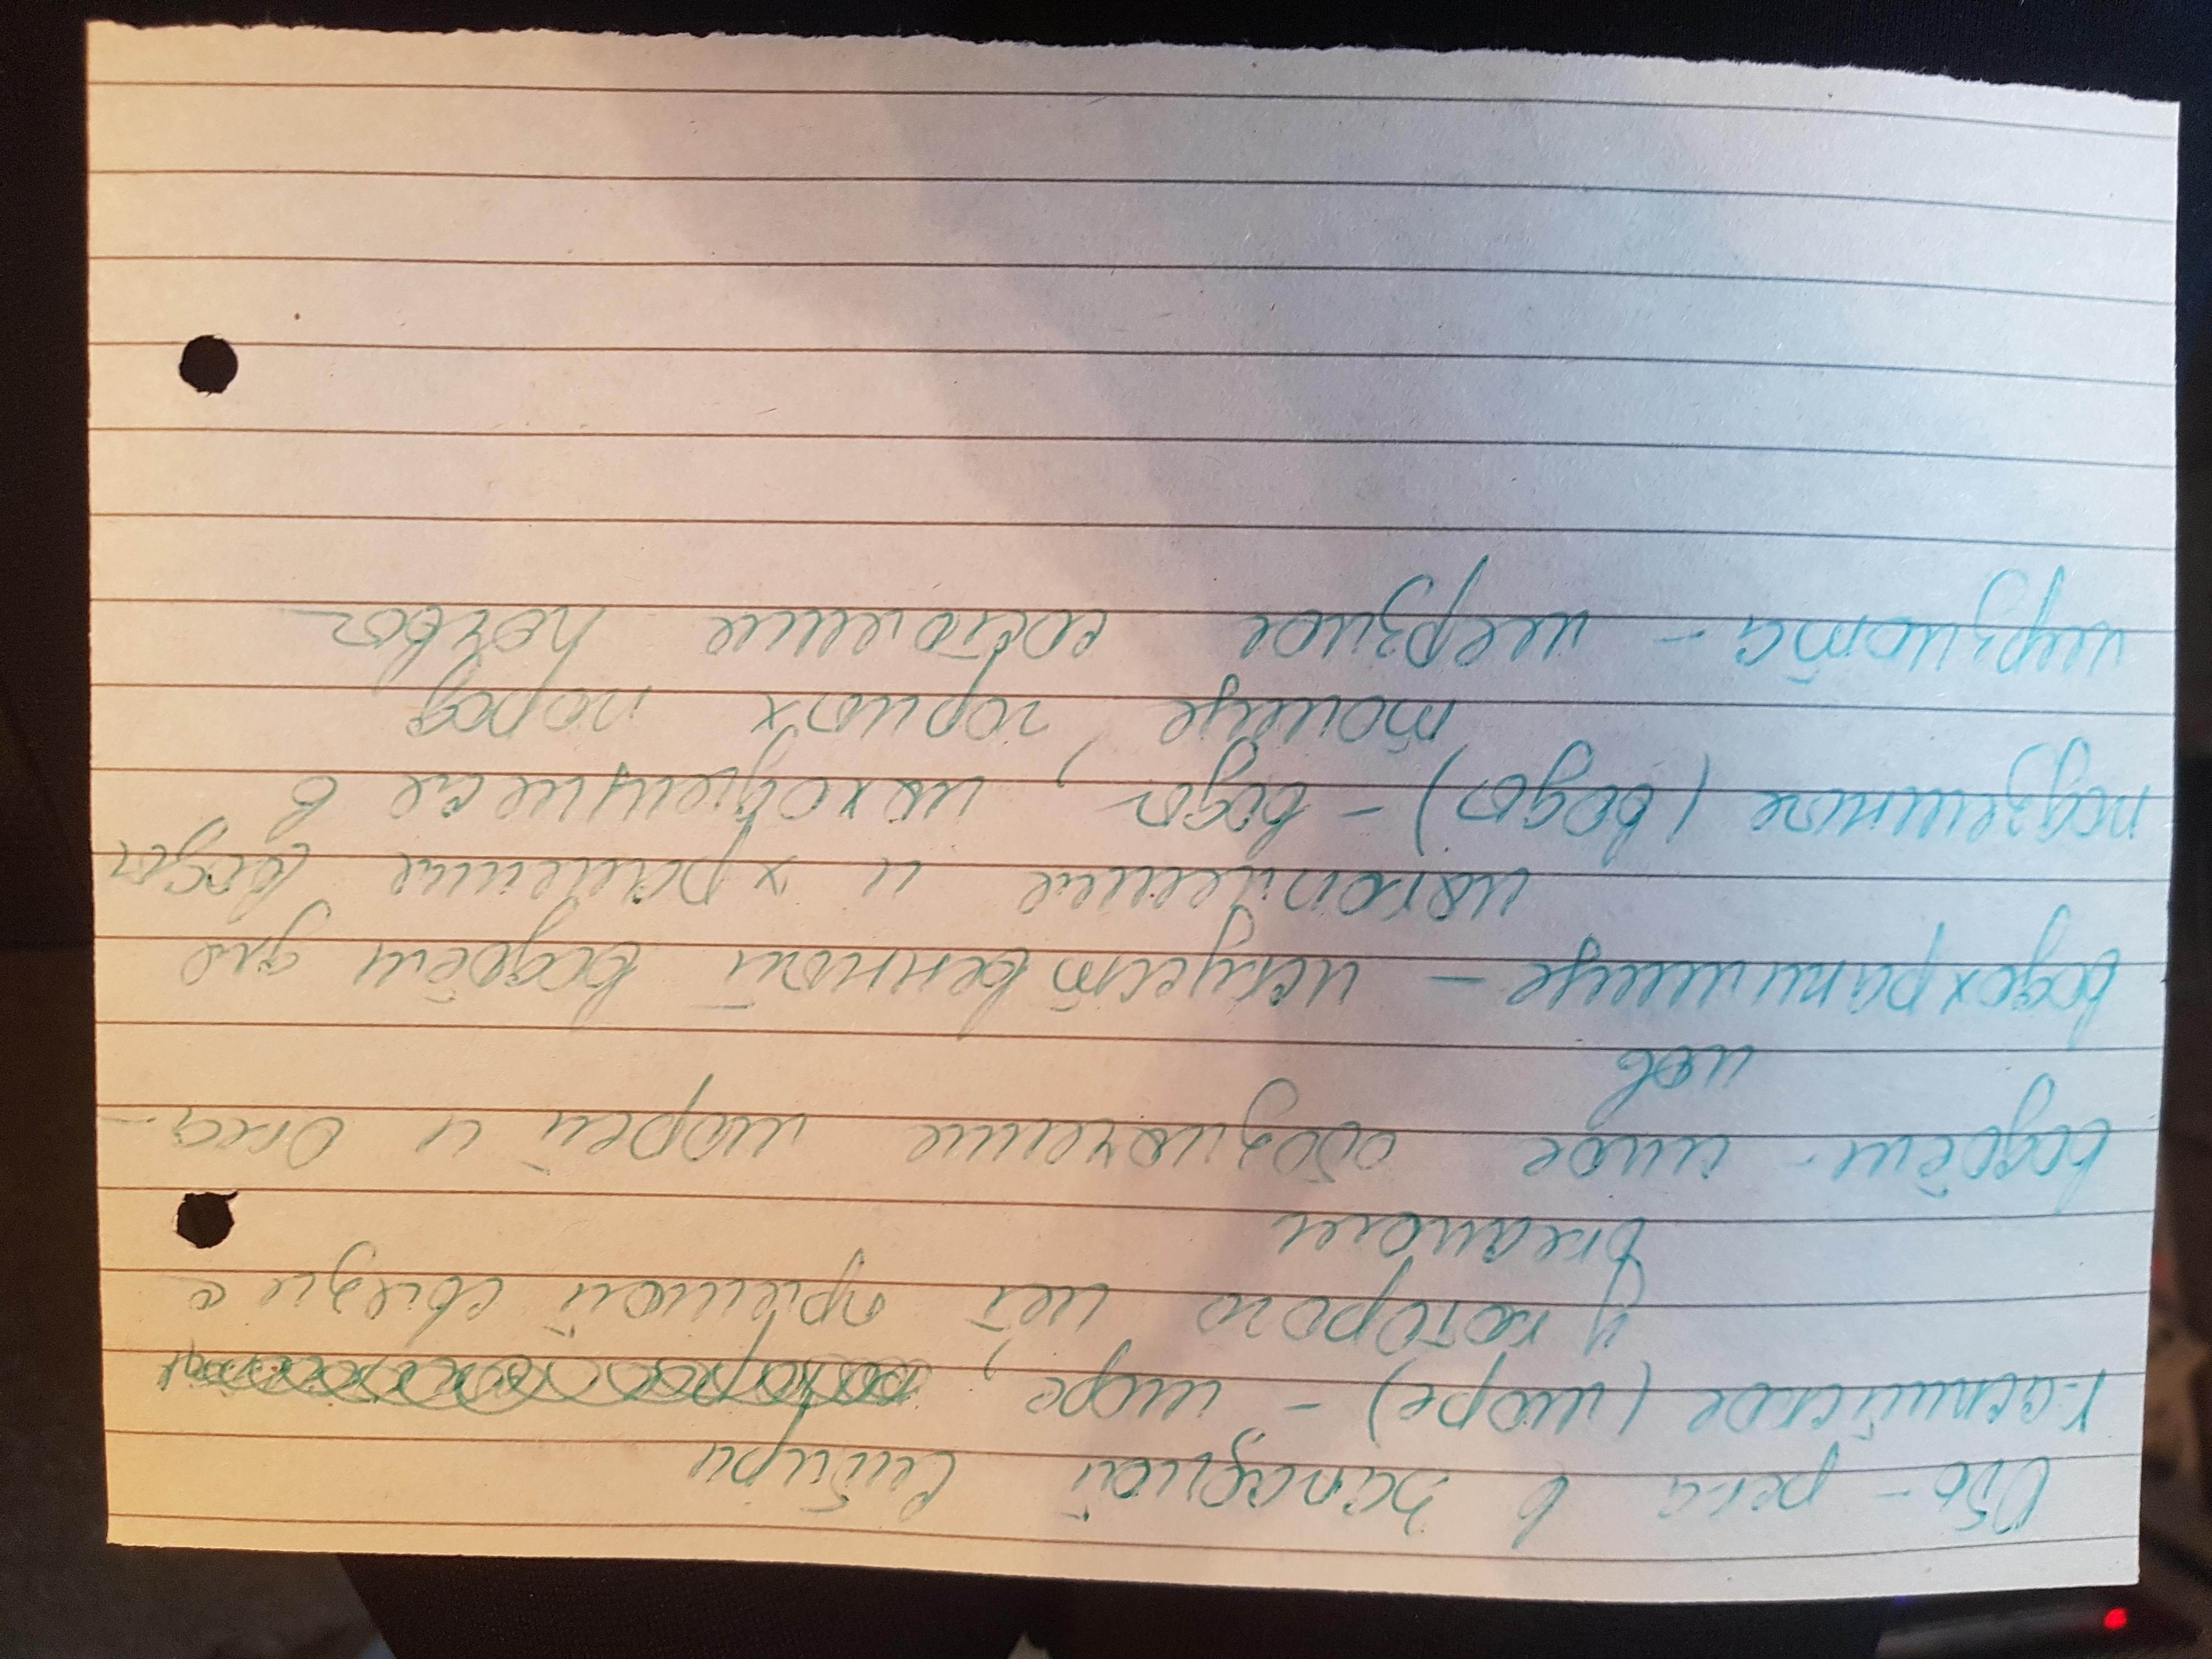 Обь - река в западной Сибири
Каспийское (море) - море,
у которого нет прямой связи с
океаном
водоём - иное обозначение морей и океа-
нов
водохранилище - искусственный водоём для
накопление и хранение воды
подземные (воды) - воды, находящиеся в
толще горных пород
мерзлота - мерзлое состояние почвы